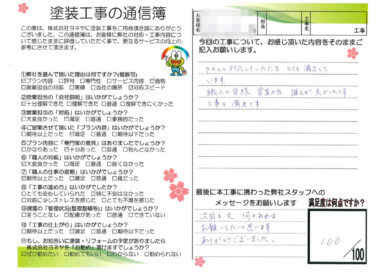 塗装工事の通信簿
この度は、株式会社ヨネヤに塗装工事をご用命頂き誠にありがとう
ございました。この通信簿は、お客様に弊社の対応・工事内容に
ついて感じたままに評価していただく事で、更なるサービスの向上の
参考にさせて頂きます。
①弊社を選んで頂いた理由は何ですか(複数可)
プラン内容 評判 専門性 サービス 価格
営業担当の対応 実績 当社の場所 対応スピード
②営業担当の「会社説明」はいかがでしょうか?
十分理解できた 理解できた 普通 理解できにくかった
③営業担当の「対応」はいかがでしょうか?
大変良かった 満足 普通 事務的だった
④ご提案させて頂いた「プラン内容」はいかがでしょうか?
期待以上だった 満足 普通 期待以下だった
⑤プラン内容に「専門家の意見」はありましたでしょうか?
かなりあった 十分あった 普通 殆んどなかった
⑥「職人の対応」はいかがでしょうか?
大変良かった 満足 普通 良くなかった
⑦「職人の仕事の姿勢」はいかがでしょうか?
期待以上だった 満足 普通 期待以下だった
⑧「工事の進め方」はいかがでしたか?
とても安心していられた 特に不安はなかった
対応に少しストレスを感じた とても不満を感じた
⑨現場の「管理状況(整理整頓等)」はいかがでしょうか?
言うことなし 配慮があった 普通 できていない
⑩「工事の仕上がり」はいかがでしょうか?
期待以上だった 満足 普通 期待以下だった
⑪もし、お知合いに塗装・リフォームの予定がありましたら
株式会社ヨネヤを「お勧め」頂けますでしょうか?
ぜひ勧めたい 勧めてもいい わからない 勧められない
工事
今回の工事について、お感じ頂いた内容をそのままご
記入お願いします。
きちんと対応していただき とても満足して
います。
職人の皆様 営業の方
工事も満足です
最後に本工事に携わった弊社スタッフへの
メッセージをお願いします
次回も又 何かあれば
お願いしたいと思います
ありがとうございました。
満足度は何点ですか?
100
/100